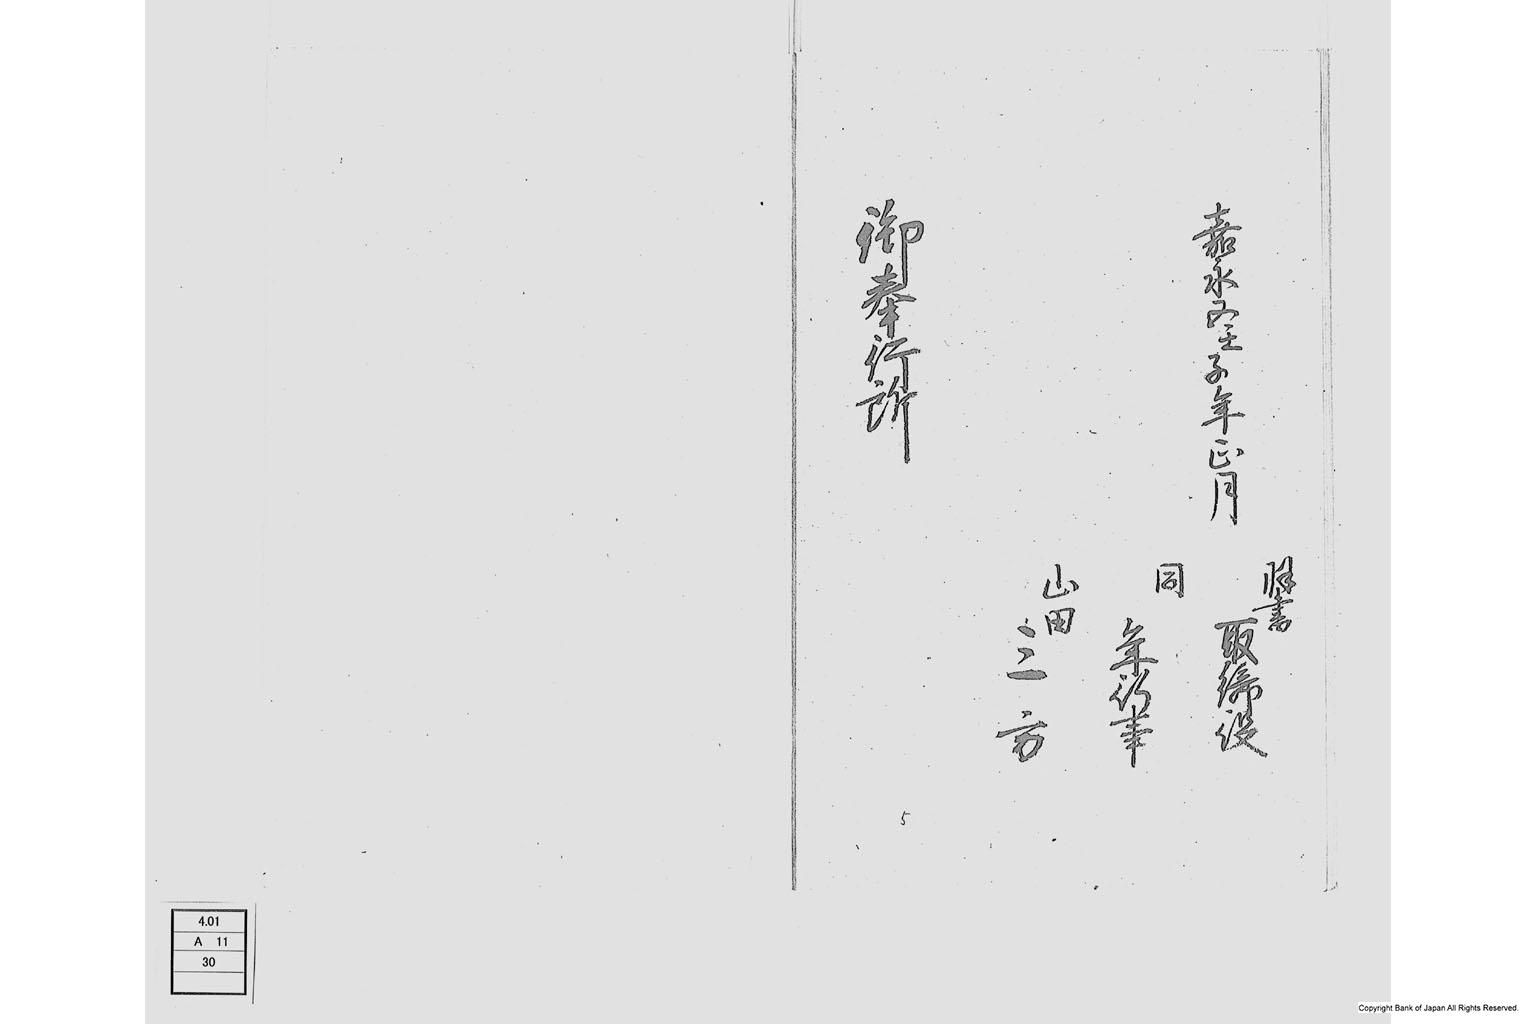 嘉永五壬子年正月
羽書
取締役
同
年行事
山田
三方
御奉行所
5
4.01
A 11
30
Copyright Bank of Japan All Rights Reserved.